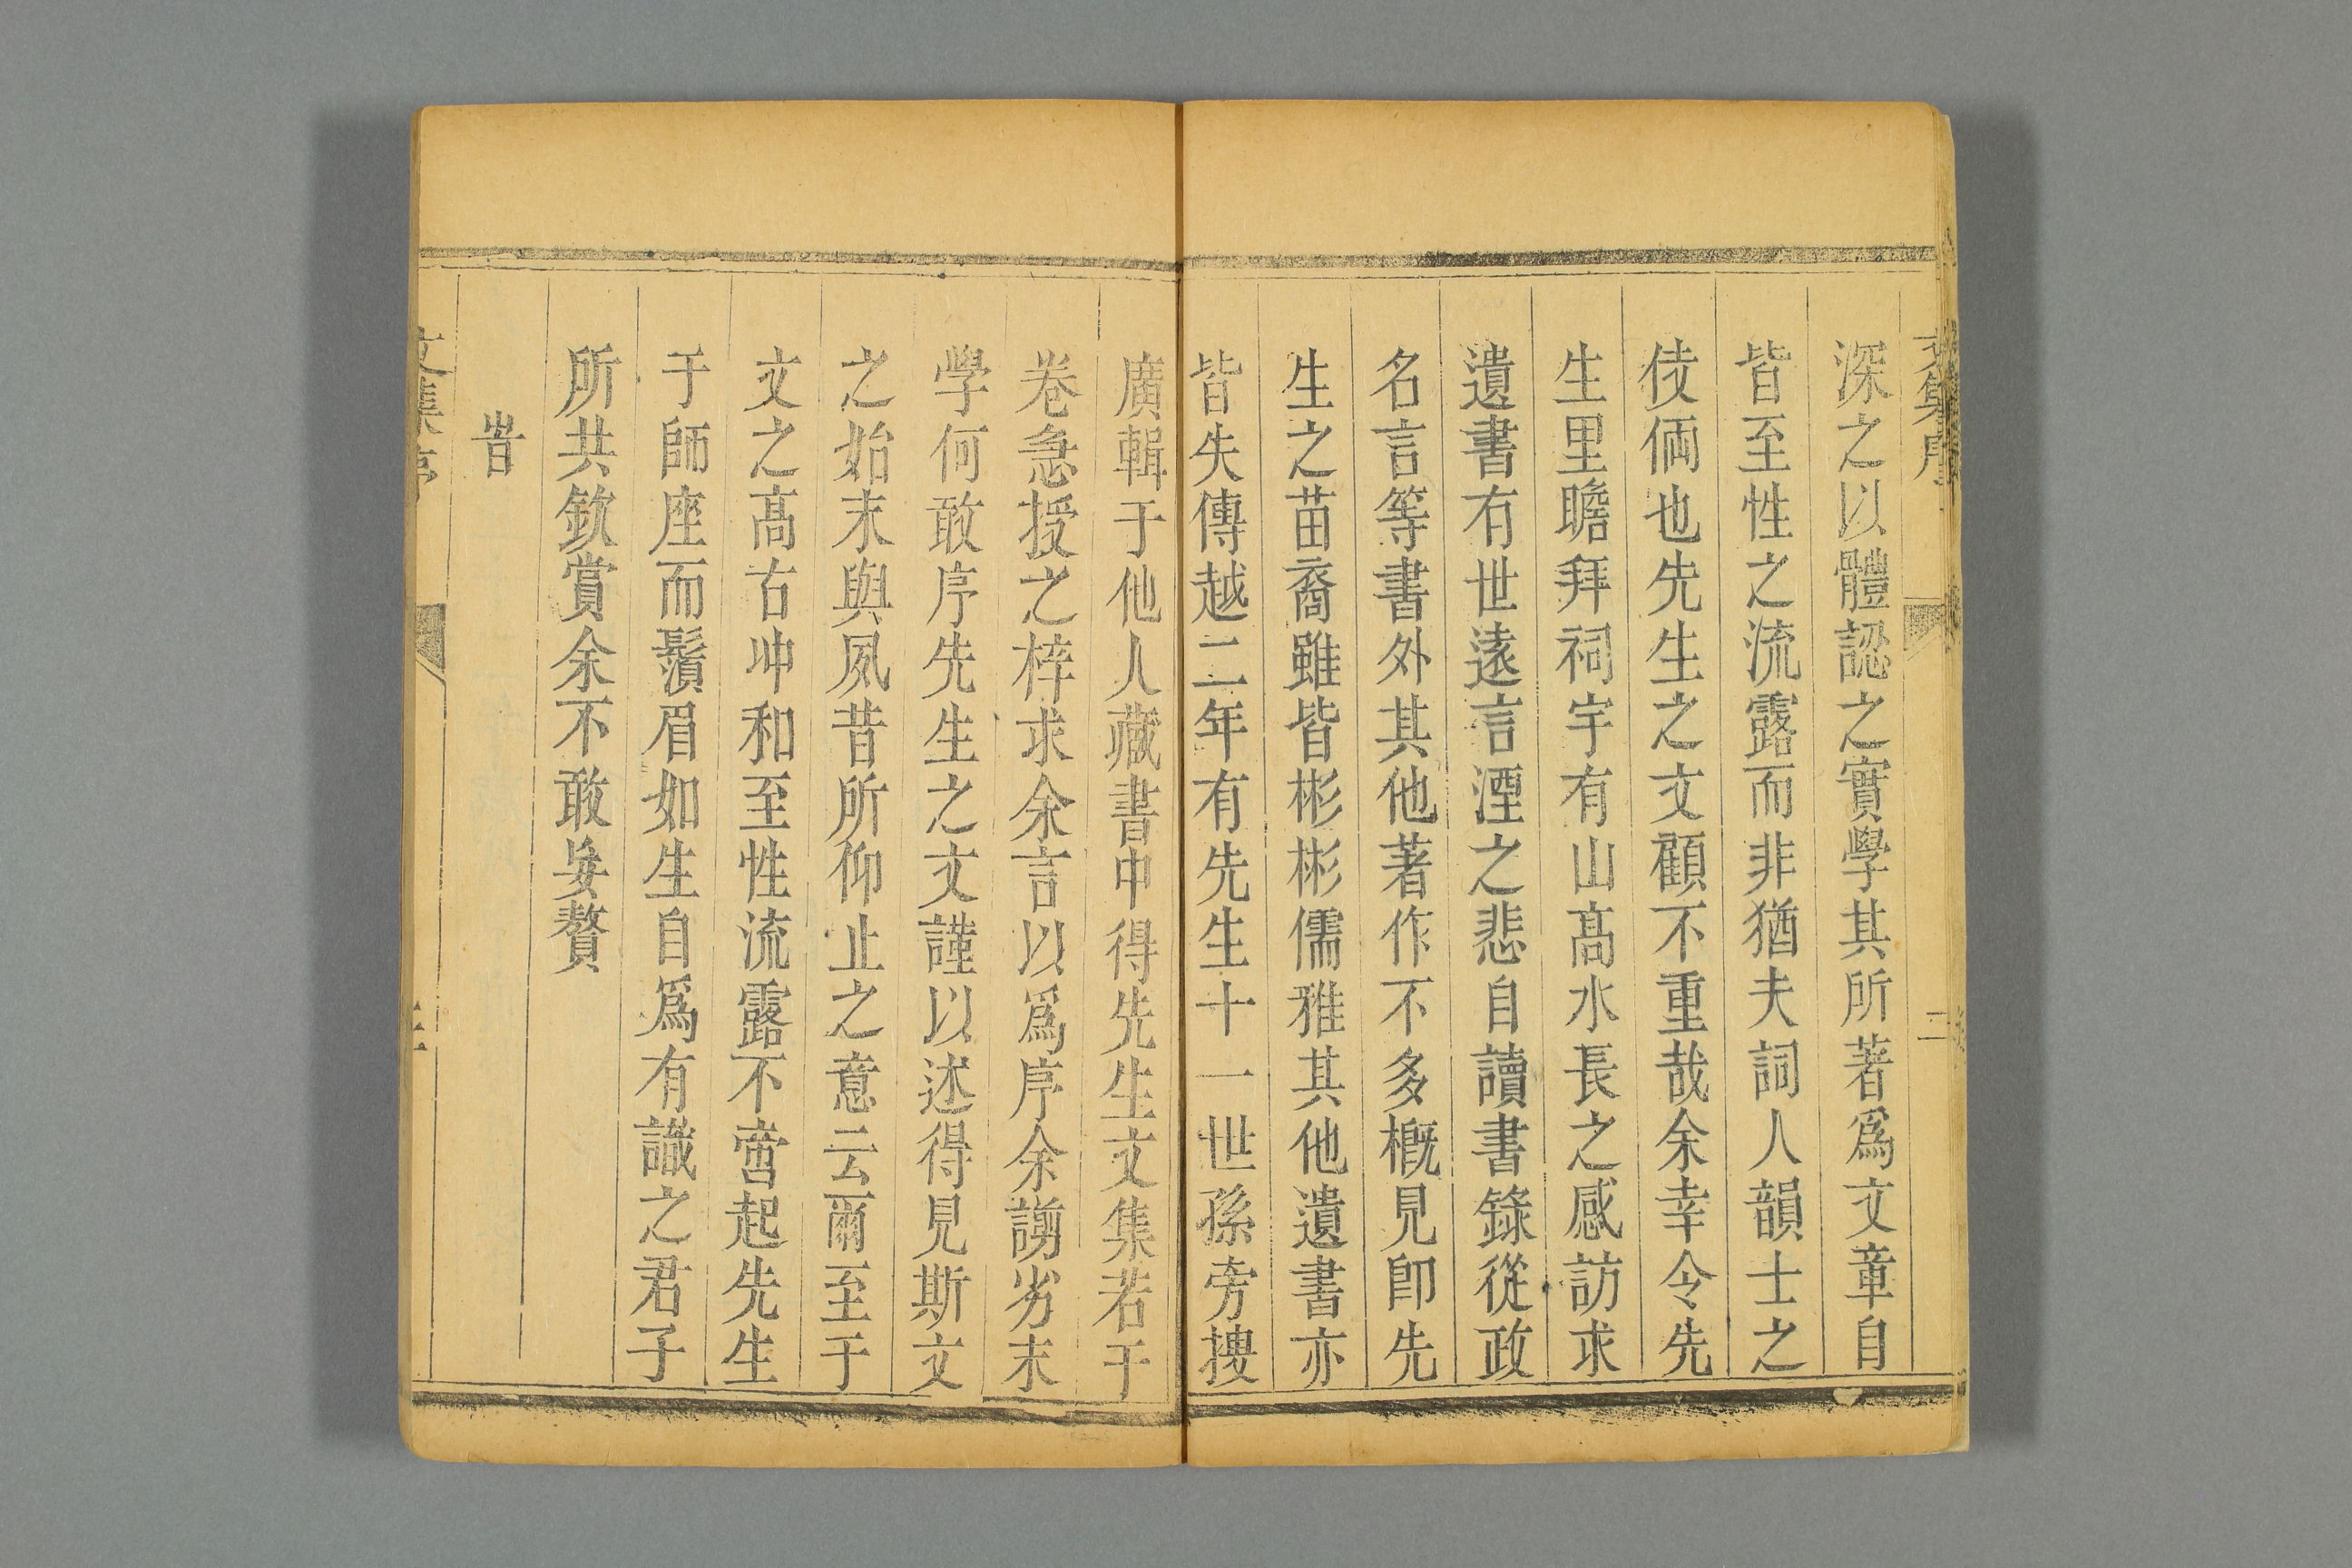 文集序
二
深之以體認之實學其所著爲文章自
皆至性之流露而非猶夫詞人韻士之
伎倆也先生之文顧不重哉余幸令先
生里瞻拜祠宇有山髙水長之感訪求
遺書有世遠言湮之悲自讀書錄從政
名言等書外其他著作不多概見卽先
生之苗裔雖皆彬彬儒雅其他遺書亦
皆失傳越二年有先生十一世孫旁搜
廣輯于他人藏書中得先生文集若干
卷急授之梓求余言以爲序余謭劣末
學何敢序先生之文謹以述得見斯文
之始末與夙昔所仰止之意云爾至于
文之髙古冲和至性流露不啻起先生
于師座而鬚眉如生自爲有識之君子
所共欽賞余不敢妄贅
旹
文集序
三